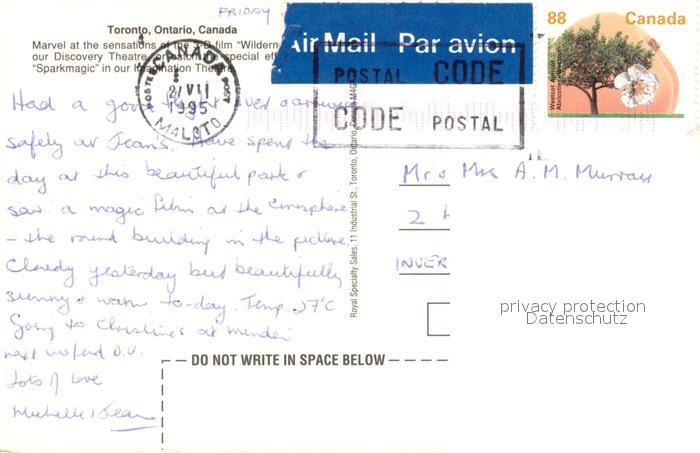 FRIDAY
Toronto, Ontario, Canada
Marvel at the sensations of the 3-D film "Wildern
our Discovery Theatre or watch the special eff
"Sparkmagic" in our Imagination Theatre
Air Mail Par avion
88 Canada
POSTAL CODE
CODE POSTAL
CANADA
POSTES POST
21 VII
1995
Had a good flight over
safely at Jean's. Have spent the
day at this beautiful park &
saw a magic film at the cinesphere
– the round building in the picture.
Cloudy yesterday but beautifully
sunny & warm to-day. Temp. 27°C
Going to Christine's at
next D.V.
Lots of love
Michelle & Jean
Royal Specialty Sales, 11 Industrial St., Toronto, Ontario, Canada M4G
Mr & Mrs A. M. Murray
2
INVER
DO NOT WRITE IN SPACE BELOW
privacy protection
Datenschutz